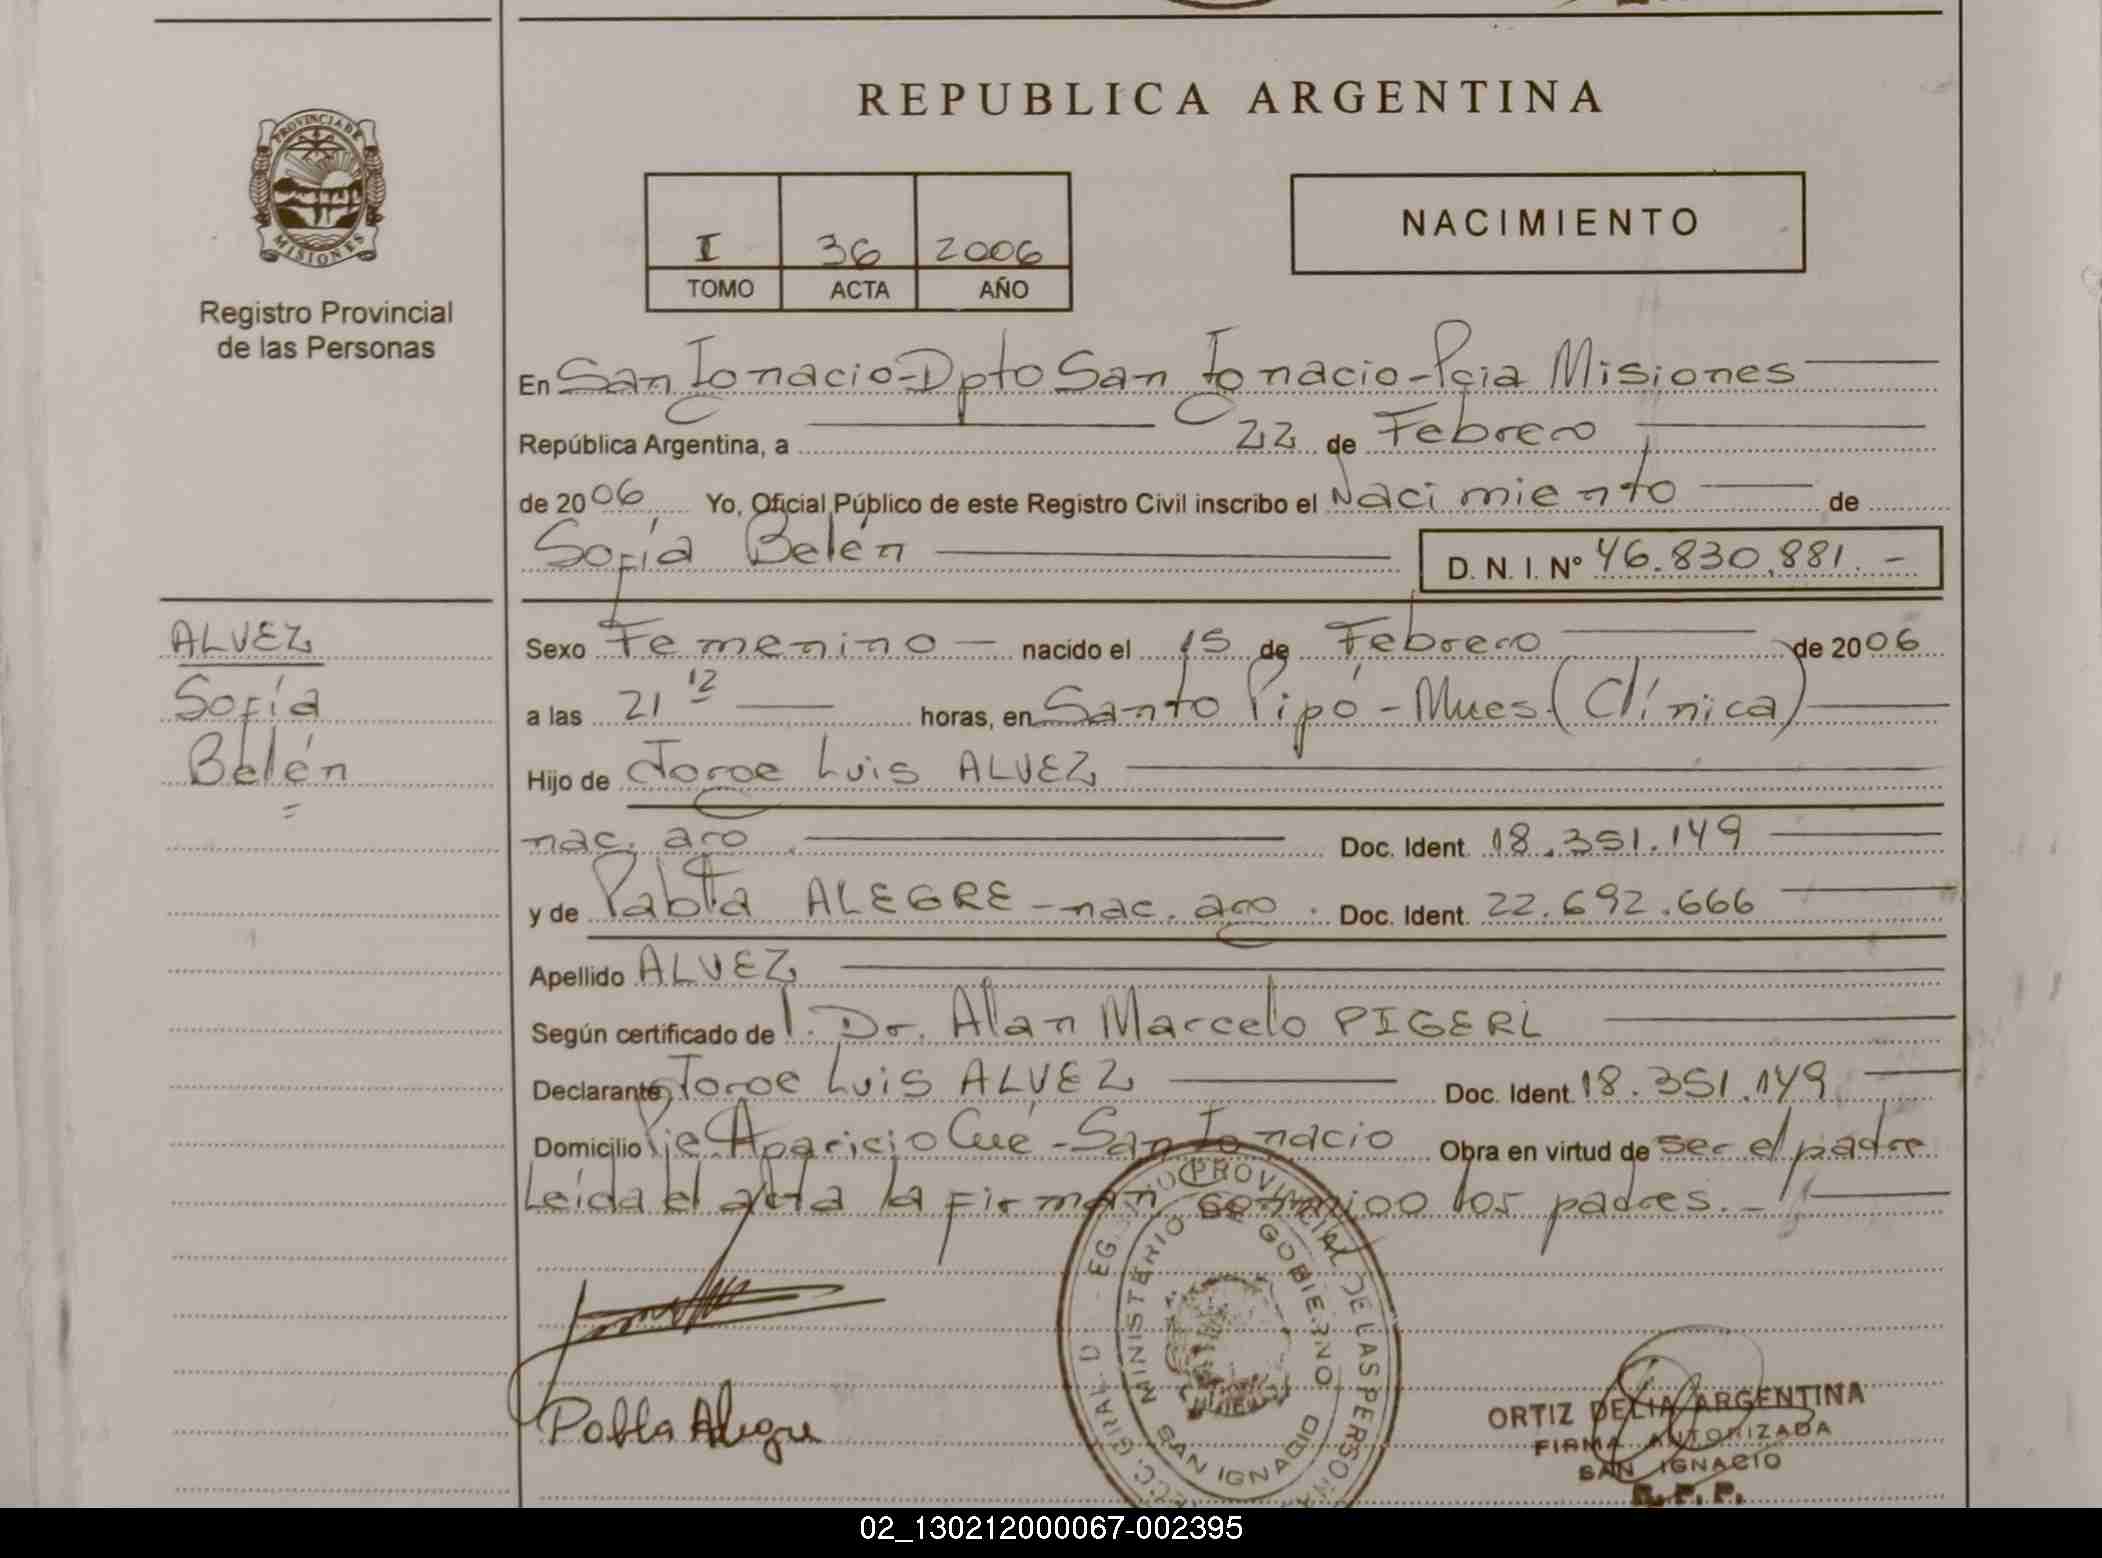 REPUBLICA ARGENTINA
PROVINCIA DE
MISIONES
Registro Provincial
de las Personas
I 36 2006
TOMO ACTA AÑO
NACIMIENTO
En San Ignacio-Dpto San Ignacio-Pcia Misiones
República Argentina, a 22 de Febrero
de 2006 Yo, Oficial Público de este Registro Civil inscribo el Nacimiento de
Sofía Belén
D. N. I. Nº 46.830.881.-
ALVEZ
Sofía
Belén
=
Sexo Femenino - nacido el 15 de Febrero de 2006
a las 21 12 horas, en Santo Pipó - Mnes. (Clínica)
Hijo de Jorge Luis ALVEZ
nac. arg. Doc. Ident. 18.351.149
y de Pabla ALEGRE - nac. arg. Doc. Ident. 22.692.666
Apellido ALVEZ
Según certificado de l. Dr. Alan Marcelo PIGERL
Declarante Jorge Luis ALVEZ Doc. Ident. 18.351.149
Domicilio Pje Aparicio Cué - San Ignacio Obra en virtud de ser el padre
Leída el acta la firman conmigo los padres. -
Pabla Alegre
PROVINCIAL DE LAS PERSONA
MINISTERIO DE GOBIERNO
SAN IGNACIO
ORTIZ DELIA ARGENTINA
FIRMA AUTORIZADA
SAN IGNACIO
R. P. P.
02_130212000067-002395